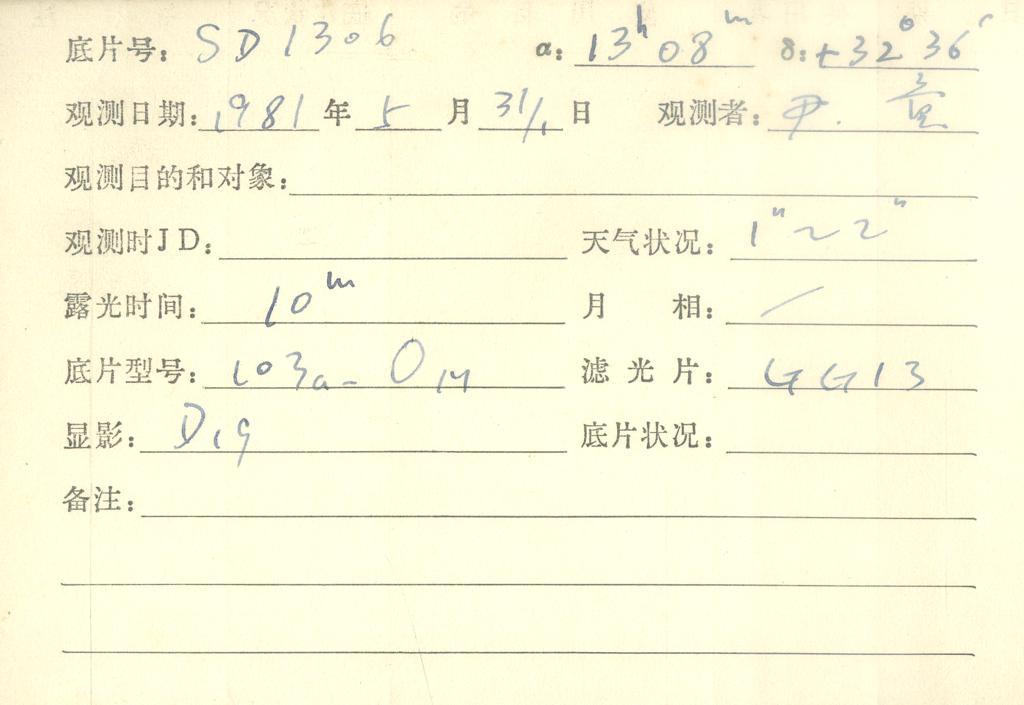 底片号: SD1306 α: 13ʰ08ᵐ δ: +32°36′
观测日期: 1981年5月31/1日 观测者: 尹.
观测目的和对象:
观测时JD: 天气状况: 1"~2"
露光时间: 10ᵐ 月相: /
底片型号: 103a-O 滤光片: GG13
显影: D19 底片状况:
备注: